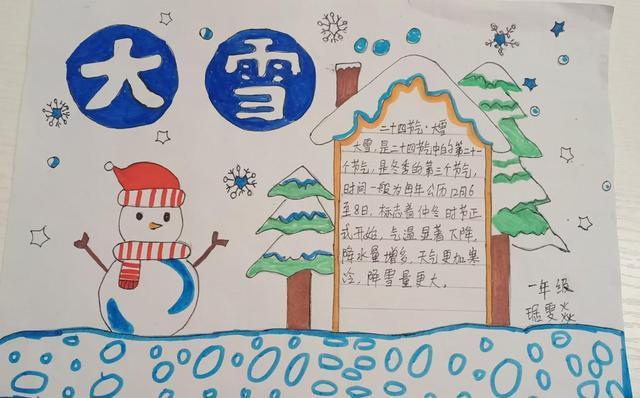 大雪
二十四节气·大雪
大雪,是二十四节气中的第二十一
个节气,是冬季的第三个节气,
时间一般为每年公历12月6
至8日,标志着仲冬时节正
式开始,气温显著下降,
降水量增多,天气更加寒
冷,降雪量更大。
一年级
琚雯焱